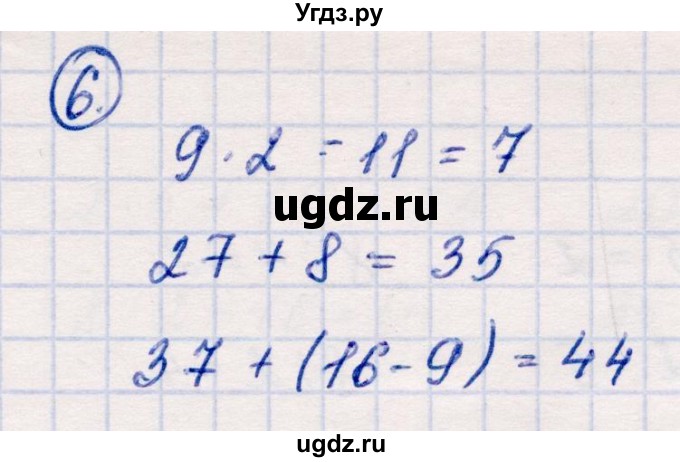 Угдз.ру
6.
9 · 2 - 11 = 7
ugdz.ru
27 + 8 = 35
37 + (16 - 9) = 44
ugdz.ru